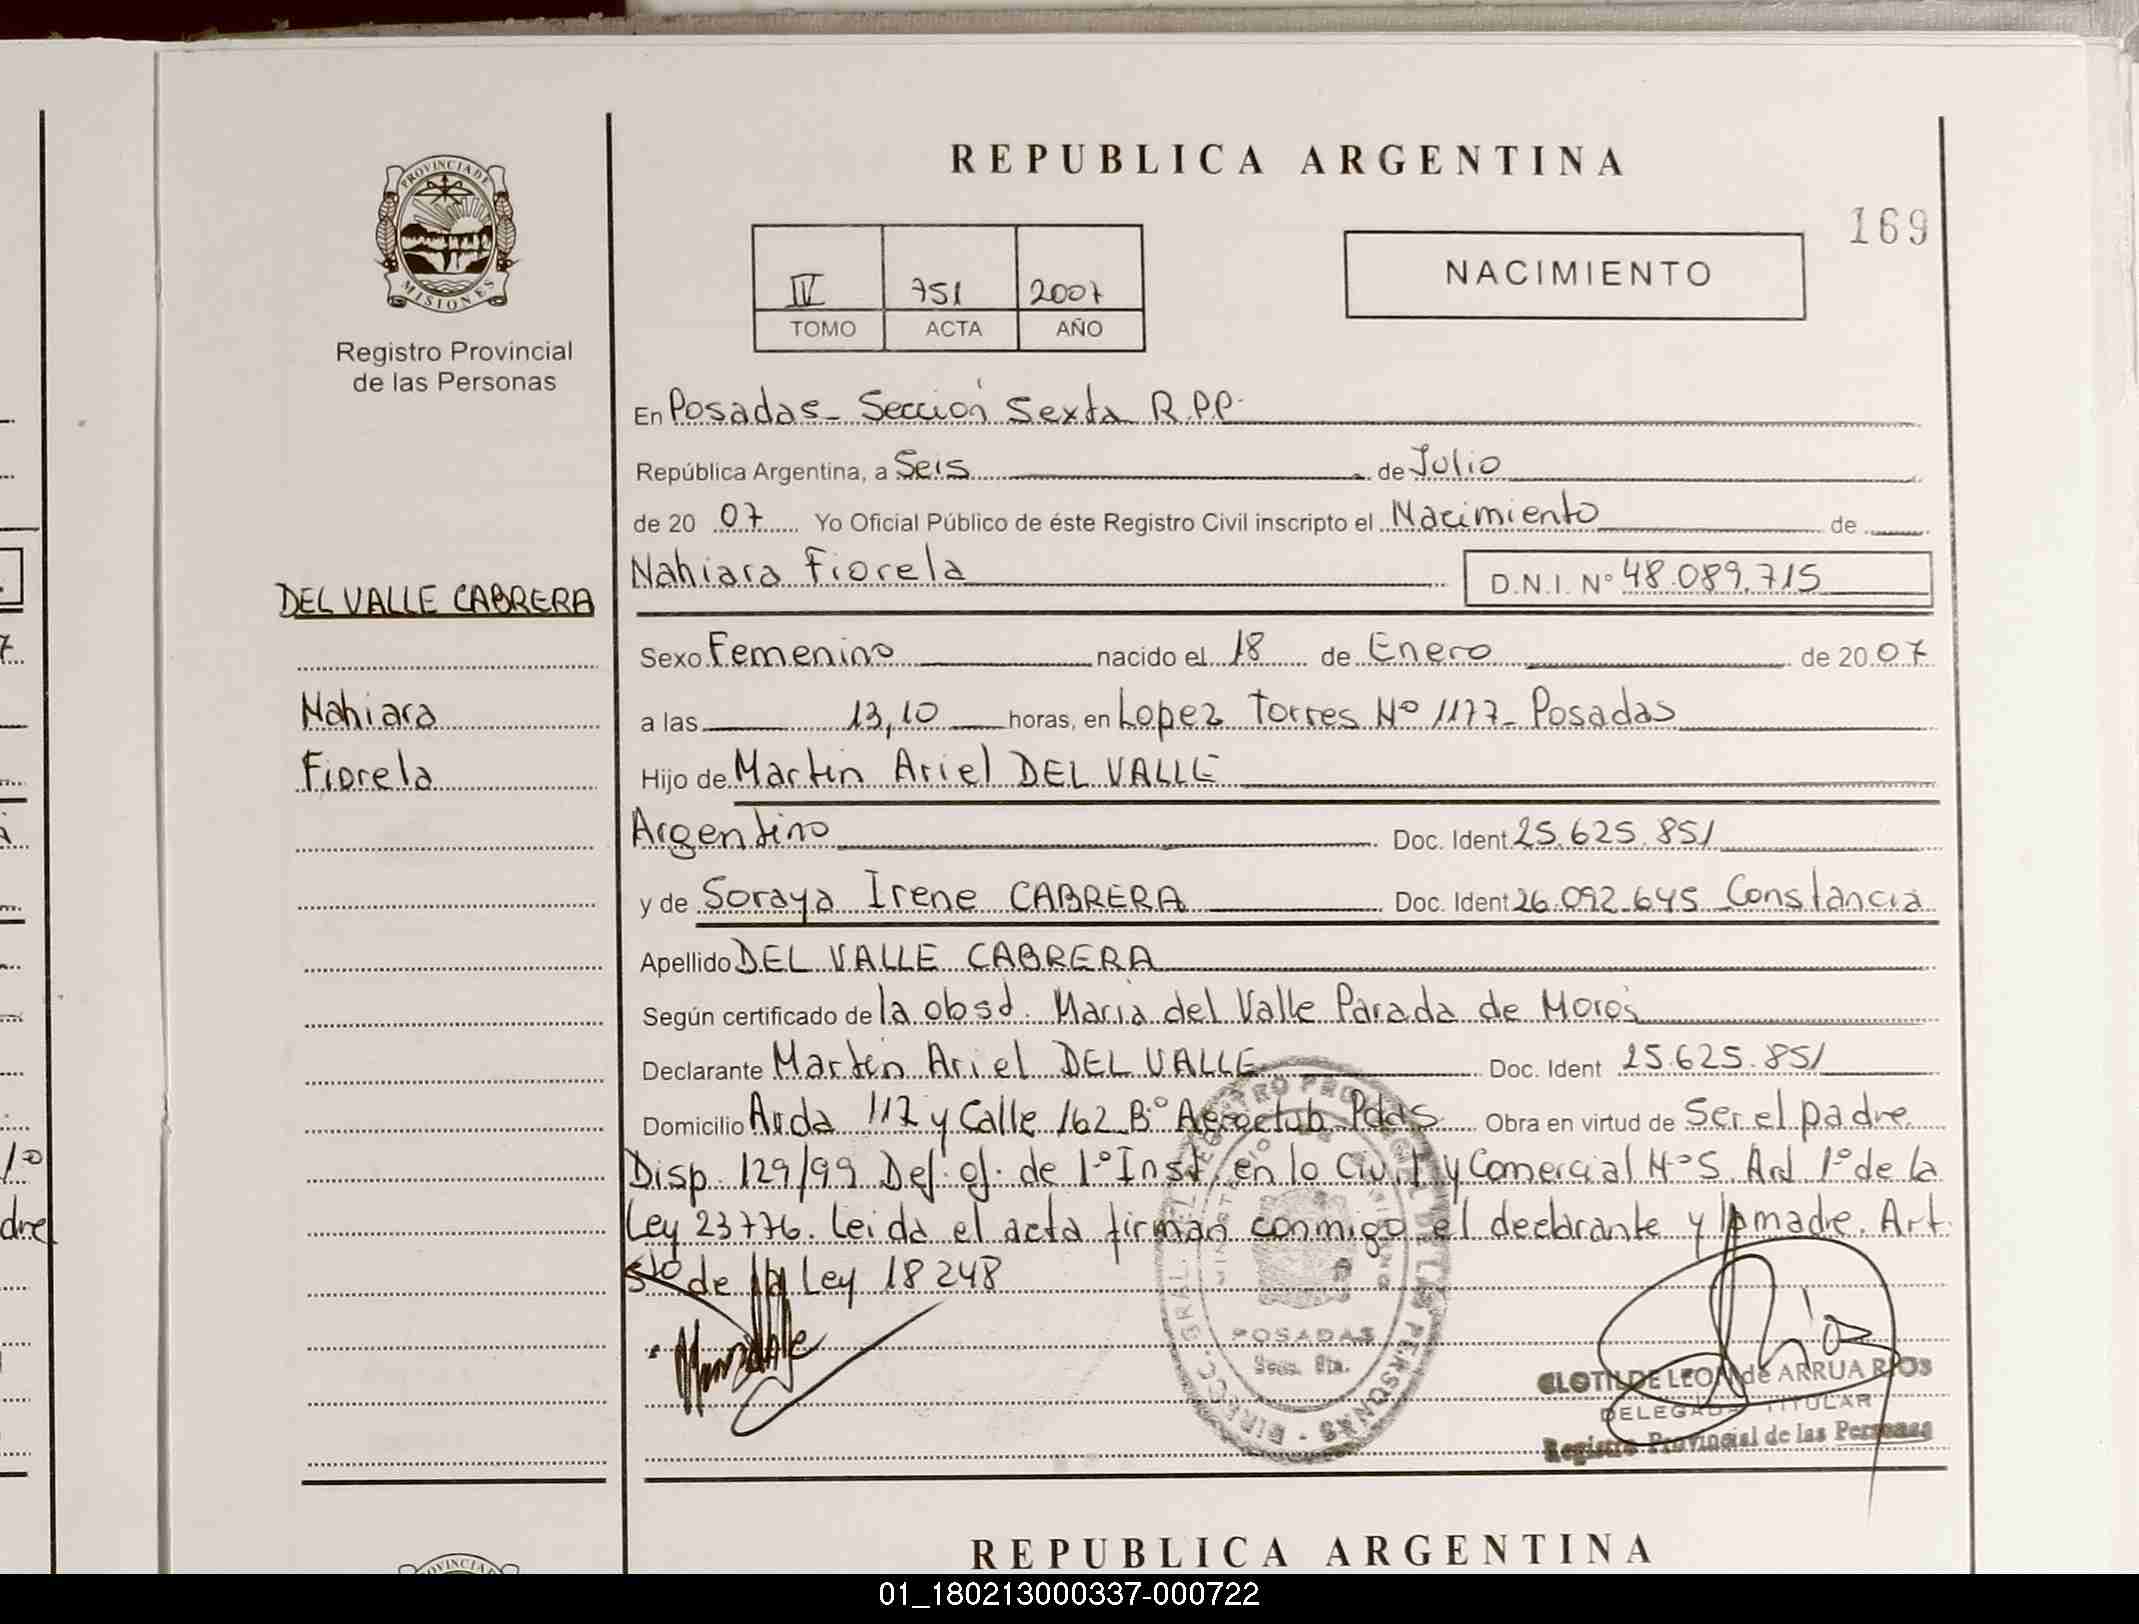 REPUBLICA ARGENTINA
169
PROVINCIA DE
MISIONES
Registro Provincial
de las Personas
IV 751 2007
TOMO ACTA AÑO
NACIMIENTO
En Posadas - Sección Sexta R.P.P.
República Argentina, a Seis de Julio
de 20 07 Yo Oficial Público de éste Registro Civil inscripto el Nacimiento de
Nahiara Fiorela D.N.I. N° 48.089.715
DEL VALLE CABRERA
Nahiara
Fiorela
Sexo Femenino nacido el 18 de Enero de 20 07
a las 13,10 horas, en Lopez Torres Nº 1177 - Posadas
Hijo de Martin Ariel DEL VALLE
Argentino Doc. Ident 25.625.851
y de Soraya Irene CABRERA Doc. Ident 26.092.645 Constancia
Apellido DEL VALLE CABRERA
Según certificado de la obsd. Maria del Valle Parada de Moros
Declarante Martin Ariel DEL VALLE Doc. Ident 25.625.851
Domicilio Avda 117 y Calle 162 Bº Aeroclub Pdas Obra en virtud de Ser el padre
Disp 129/99 Def. of. de 1º Inst. en lo Civil y Comercial Nº 5. Art 1º de la
Ley 23776. Leida el acta firman conmigo el declarante y la madre. Art.
5to de la Ley 18248
POSADAS
Secc. 6ta.
CLOTILDE LEON de ARRUA RIOS
DELEGADA TITULAR
Registro Provincial de las Personas
REPUBLICA ARGENTINA
01_180213000337-000722